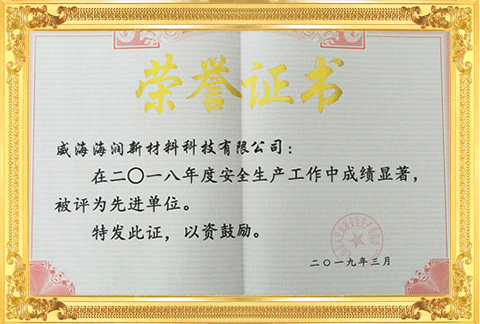 荣誉证书
威海海润新材料科技有限公司：
在二〇一八年度安全生产工作中成绩显著，
被评为先进单位。
特发此证，以资鼓励。
二〇一九年三月